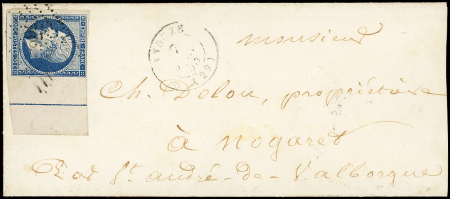 monsieur
Ch. Delon, propriétaire
à nogaret
St andré-de-Valborgne